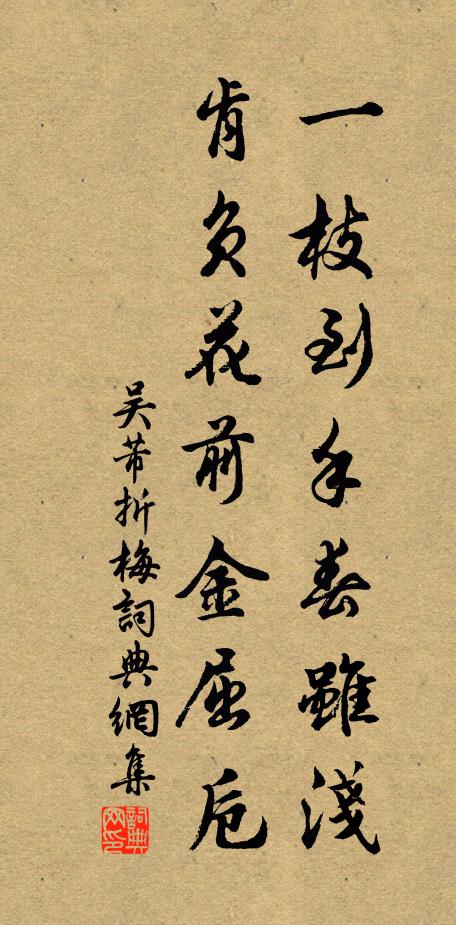 一枝到手春雖淺
肯負花前金屈卮
吳芾折梅詞典網集
詞典網印